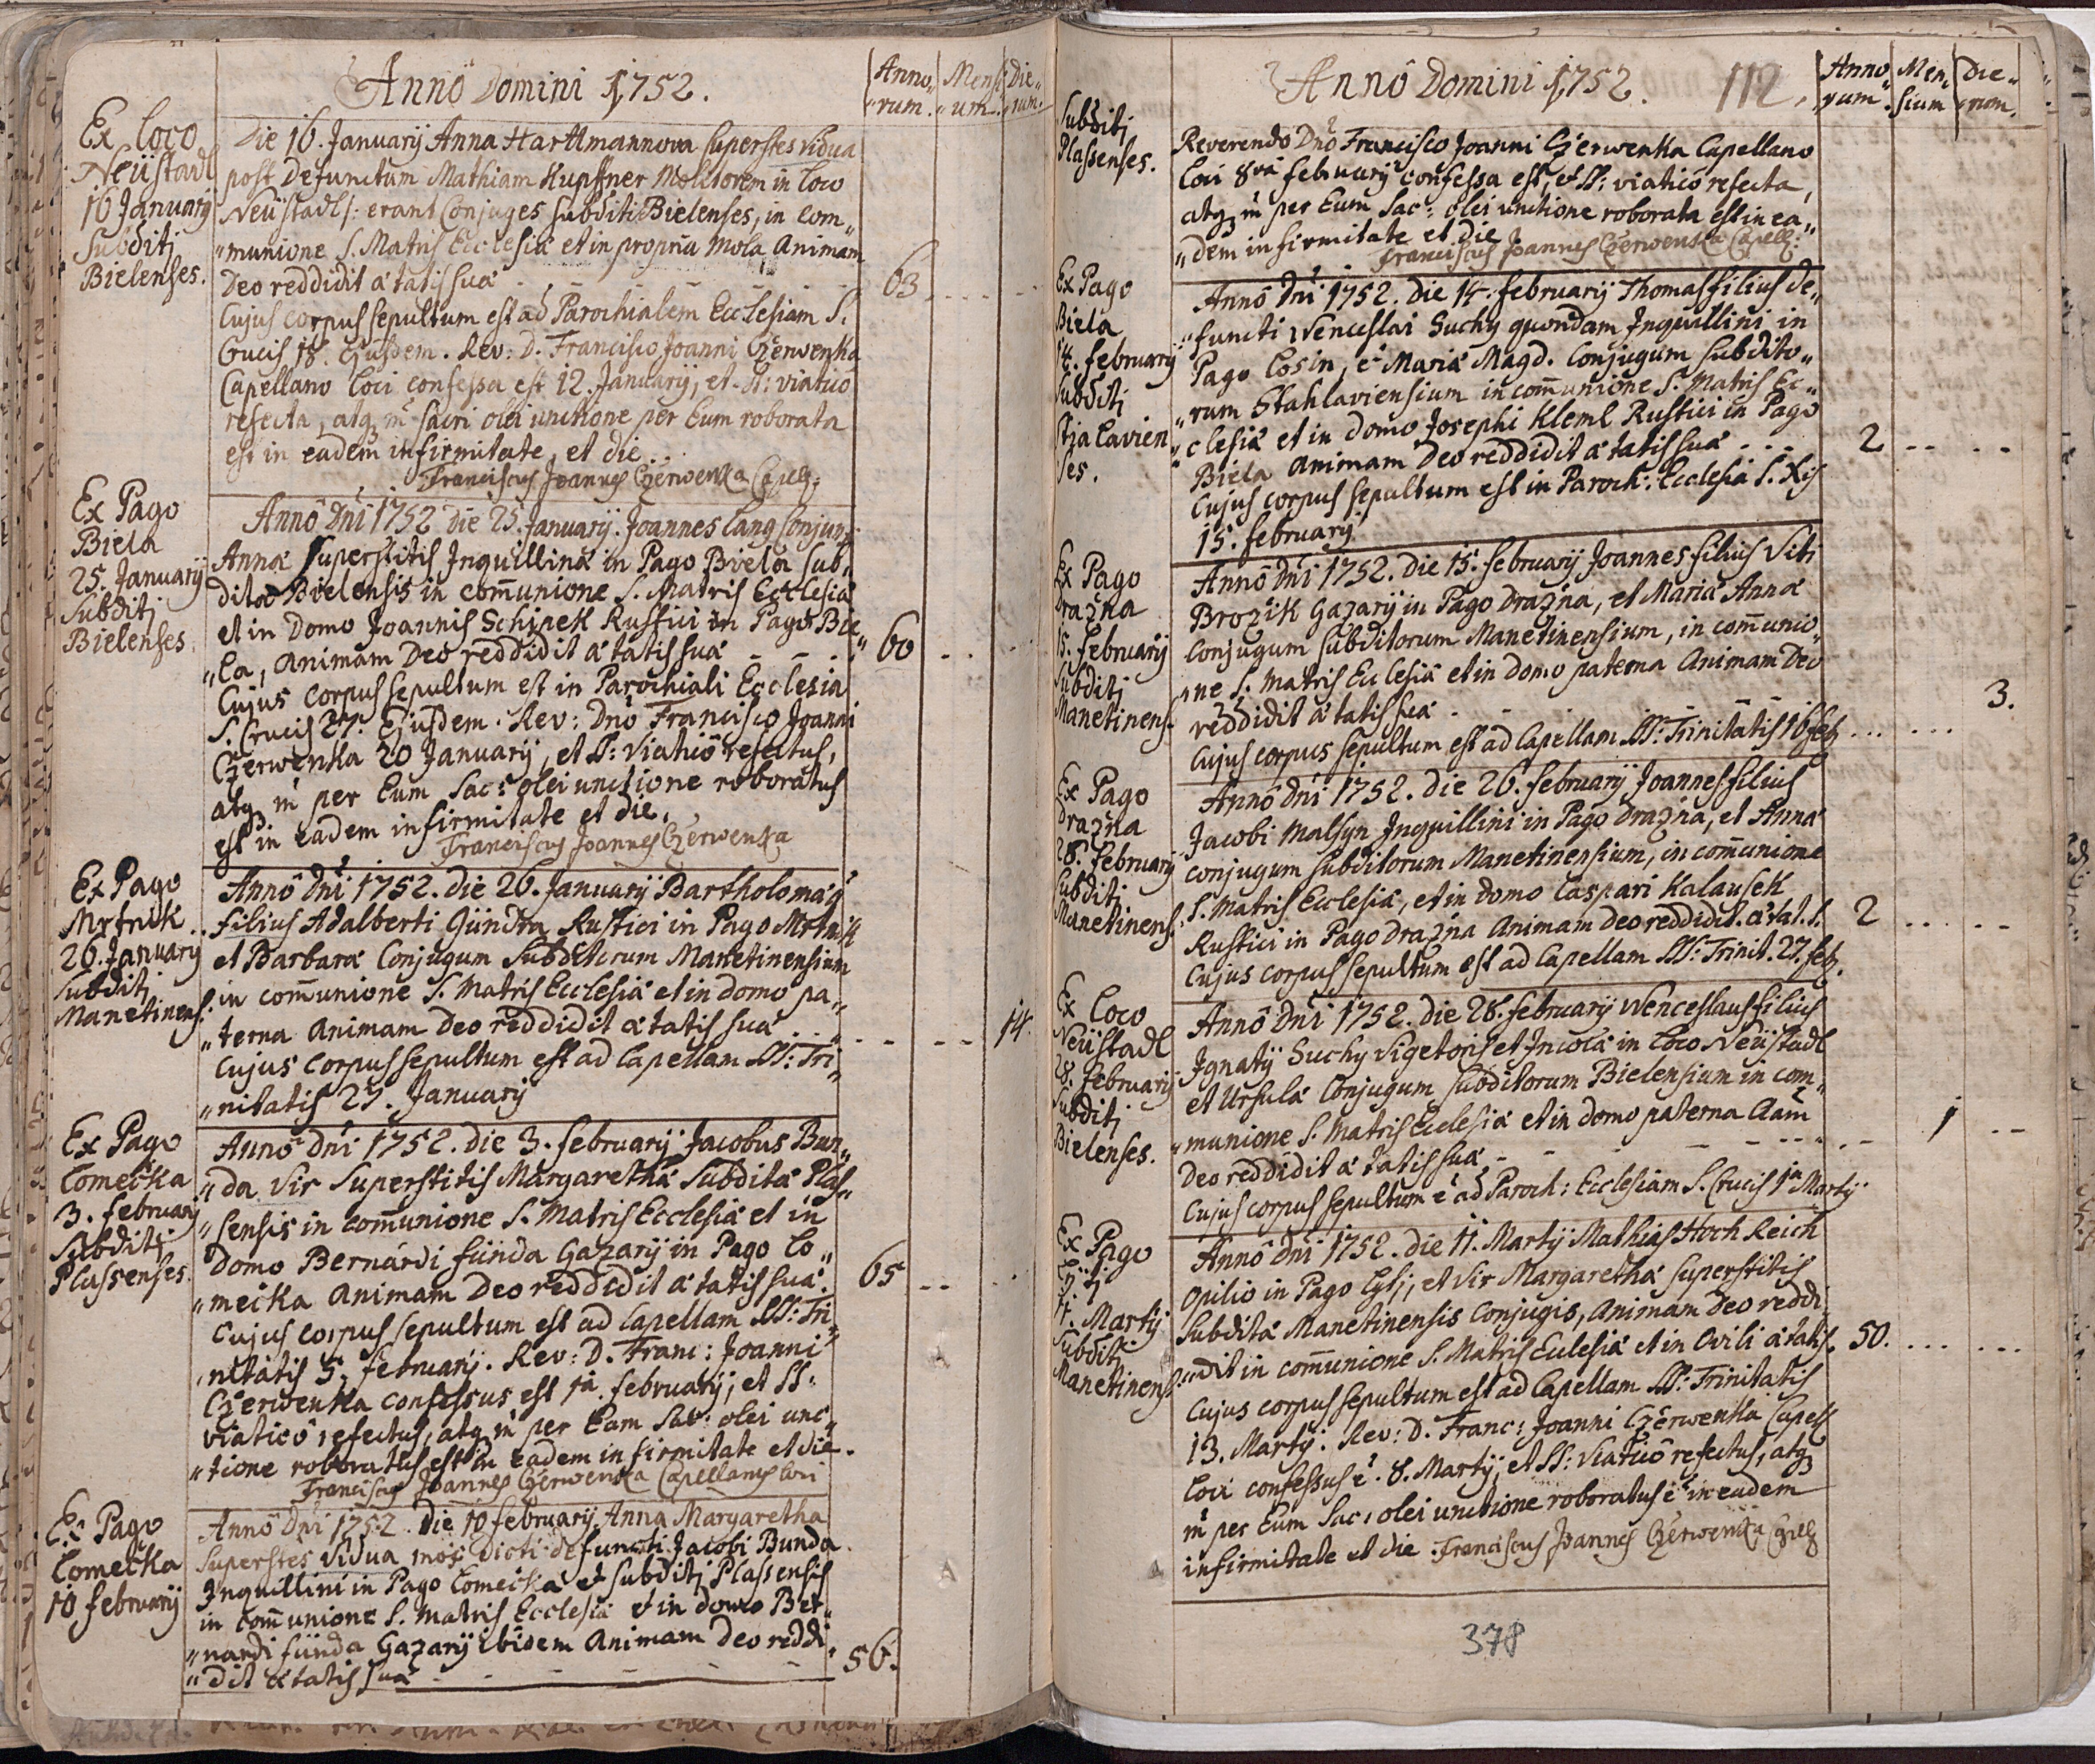 Annô Domini 1752.
Anno„ „rum.
Mensi „um.
Die„ „rum.
Ex Loco
Neüstadl
16 January
Subditj
Bielenses.
Die 16. Januarij Anna Harttmannova superstes vidua
post defunctum Mathiam Kupffner Molitorem in loco
Neüstadl /: erant Conjuges subditi Bielenses, in com„
„munione S. Matris Ecclesiæ et in propria mola Animam
Deo reddidit ætatis suæ - - - 63.
Cujus corpus sepultum est ad Parochialem Ecclesiam S.
Crucis 18. Ejusdem. Rev: D. Francisco Joanni Czerwenka
Capellano Loci confessa est 12. Januarij, et SS: viatico
refecta, atq m sacri olei unctione per Eum roborata
est in eadem infirmitate, et die.
Franciscus Joannes Czerwenka Capell:
Ex Pago
Biela
25. January
Subditj
Bielenses.
Annô Dni 1752 Die 25. Januarij. Joannes Lang Conjunx
Annæ superstitis Inquillinæ in Pago Biela sub„
ditæ Bielensis in com̄unione S. Matris Ecclesiæ
et in Domo Joannis Schipek Rustici in Pago Bie„
„la, animam Deo reddidit ætatis suæ - - - 60
Cujus corpus sepultum est in Parochiali Ecclesia
S. Crucis 27. Ejusdem. Rev: Dno Francisco Joanni
Czerwenka 20 Januarij, et SS: viaticô refectus,
atq m per Eum Sac: olei unctione roboratus
est in eadem infirmitate et die.
Franciscus Joannes Czerwenka
Ex Pago
Mrtnik
26. January
Subditj
Manetinens:
Annô Dni 1752. die 26. Januarij Bartholomæ9
filius Adalberti Gündra Rustici in Pago Mrtnik
et Barbaræ Conjugum Subditorum Manetinensium
in com̄unione S. Matris Ecclesiæ et in domo pa„
„terna Animam Deo reddidit ætatis suæ . . . 14.
Cujus Corpus sepultum est ad Capellam SS: Tri„
„nitatis 27. January
Ex Pago
Comečka
3. february
Subditj
Plassenses.
Annô Dni 1752. die 3. februarij Jacobus Bun„
„da Vir Superstitis Margarethæ Subditæ Plas„
„sensis in com̄unione S. Matris Ecclesiæ et in
Domo Bernardi fünda Gazarij in Pago Co„
„mečka Animam Deo reddidit ætatis suæ. 65
Cujus corpus sepultum est ad Capellam SS: Tri„
„nitatis 5. februarij. Rev: D. Franc: Joanni
Czerwenka confessus est 1a februarij, et SS:
viaticô refectus, atq m per Eum Sac: olei unc„
„tione roboratus est in eadem infirmitate et die.
Franciscus Joannes Czerwenka Capellanus Loci
Ex Pago
Comečka
10 february
Annô Dni 1752. Die 10 februarij Anna Margaretha
Superstes vidua mox dicti defuncti Jacobi Bunda
Inquillini in Pago Comečka et subditj Plassensis
in com̄unione S. Matris Ecclesiæ et in domo Ber„
„nardi fünda Gazarij ibidem Animam Deo reddi„
„dit ætatis suæ - - - 56.
Annô Domini 1752. 112.
Anno„ „rum
Men„ sium
Die„ „rum.
Subditj
Plassenses.
Reverendo Dnô Francisco Joanni Czerwenka Capellano
Loci 8va february confessa est, et SS: viaticô refecta,
atq m per Eum Sac: olei unctione roborata est in ea„
„dem infirmitate et die
Franciscus Joannes Czerwenka Capell:
Ex Pago
Biela
14. february
Subditj
Stjalavien
ses.
Annô Dni 1752. die 14. februarij Thomas filius de„
„functi Wenceslai Suchy quondam Inquillini in
Pago Losin, è Mariæ Magd. Conjugum subdito„
„rum Stahlaviensium in com̄unione S. Matris Ec„
„clesiæ et in domo Josephi Kleml Rustici in Pago
Biela Animam Deo reddidit ætatis suæ . . . 2
Cujus corpus sepultum est in Paroch: Ecclesia S. Xis
15. february
Ex Pago
Dražna
15. february
Subditj
Manetinens.
Annô Dni 1752. die 15. februarij Joannes filius Viti
Brozik Gazarij in Pago Dražna, et Mariæ Annæ
Conjugum subditorum Manetinensium, in com̄unio„
„ne S. Matris Ecclesiæ et in domo paterna Animam Deo
reddidit ætatis suæ - - - 3.
Cujus corpus sepultum est ad Capellam SS: Trinitatis 16 feb.
Ex Pago
Dražna
26. february
Subditj
Manetinens.
Annô Dni 1752. die 26. februarij Joannes filius
Jacobi Malsyn Inquillini in Pago Dražna, et Annæ
conjugum subditorum Manetinensium, in com̄unione
S. Matris Ecclesiæ, et in domo Caspari Kalausek
Rustici in Pago Dražna Animam Deo reddidit ætat. S. 2
Cujus corpus sepultum est ad Capellam SS: Trinit. 27. feb.
Ex Loco
Neüstadl
28. february
Subditj
Bielenses.
Annô Dni 1752. die 28. februarij Wenceslaus filius
Ignatij Suchy Vigetoris et Incolæ in Loco Neüstadl
et Ursulæ Conjugum subditorum Bielensium in com„
„munione S. Matris Ecclesiæ et in domo paterna Aam̄
Deo reddidit ætatis suæ - - - 1
Cujus corpus sepultum e ad Paroch: Ecclesiam S. Crucis 1a Martij
Ex Pago
11. Martij
Subditj
Manetinens:
Annô Dni 1752. die 11. Martij Mathias Hoch Reich
Opilio in Pago Lytj, et Vir Margarethæ superstitis
Subditæ Manetinensis Conjugis, Animam Deo reddi„
„dit in com̄unione S. Matris Ecclesiæ et in Ovili ætatis. 50.
Cujus corpus sepultum est ad Capellam SS: Trinitatis
13. Martij. Rev: D. Franc: Joanni Czerwenka Capell
Loci confessus e. 8. Martij, et SS: viaticô refectus, atq
m per Eum Sac: olei unctione roboratus e in eadem
infirmitate et die. Franciscus Joannes Czerwenka Capell
378